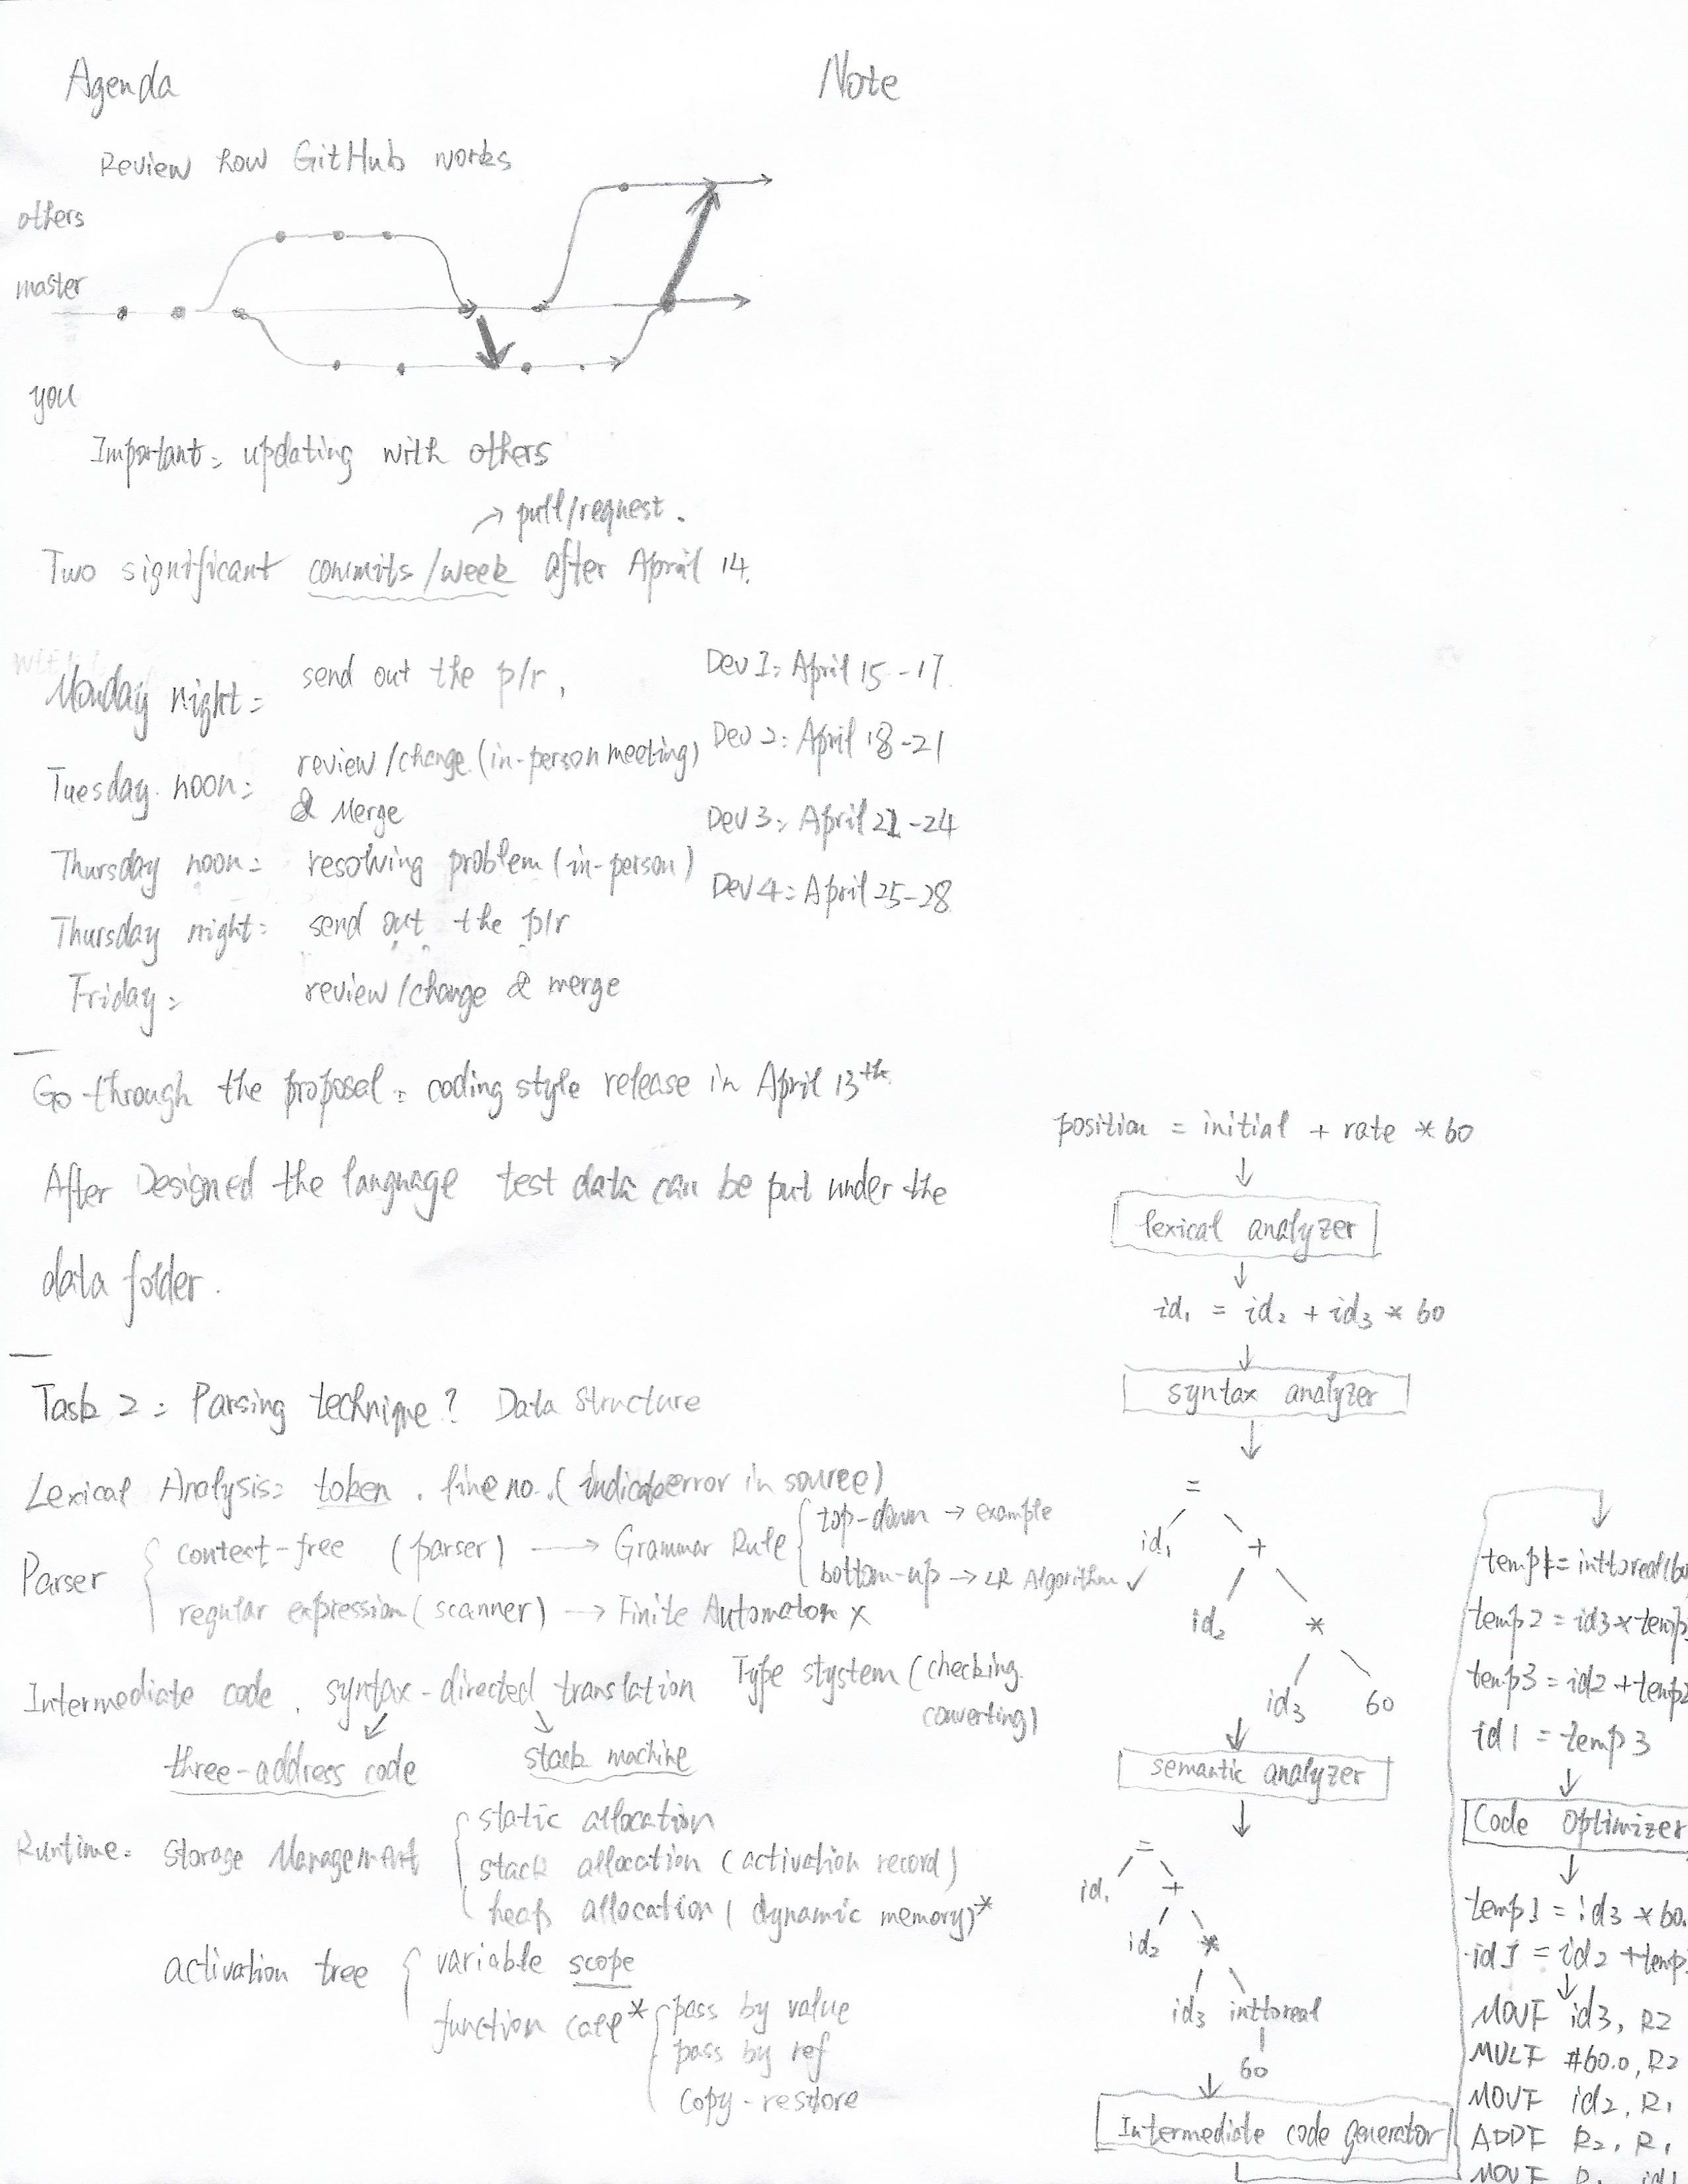 Agenda
Note
Review how GitHub works
others
master
you
Important: updating with others
→ pull/request.
Two significant commits/week after April 14.
Monday night: send out the p/r,
Dev 1: April 15-17.
Tuesday noon: review/change (in-person meeting)
& Merge
Dev 2: April 18-21
Dev 3: April 22-24
Thursday noon: resolving problem (in-person)
Dev 4: April 25-28
Thursday night: send out the p/r
Friday: review/change & merge
Go through the proposal: coding style release in April 13th.
After Designed the language test data can be put under the
data folder.
Task 2: Parsing technique? Data Structure
Lexical Analysis: token, line no. (indicate error in source)
Parser
context-free (parser) → Grammar Rule
top-down → example
bottom-up → LR Algorithm ✓
regular expression (scanner) → Finite Automaton x
Intermediate code, syntax-directed translation
Type stystem (checking
converting)
three-address code
stack machine
Runtime: Storage Management
static allocation
stack allocation (activation record)
heap allocation (dynamic memory)*
activation tree
variable scope
function call*
pass by value
pass by ref
copy-restore
position = initial + rate * 60
↓
lexical analyzer
↓
id1 = id2 + id3 * 60
↓
syntax analyzer
↓
=
id1 +
id2 *
id3 60
↓
semantic analyzer
↓
=
id1 +
id2 *
id3 inttoreal
60
↓
Intermediate code generator
temp1 = inttoreal(60
temp2 = id3 * temp
temp3 = id2 + temp2
id1 = temp3
↓
Code Optimizer
↓
temp1 = id3 * 60.
id1 = id2 + temp
↓
MOVF id3, R2
MULF #60.0, R2
MOVF id2, R1
ADDF R2, R1
MOVF R1, id1